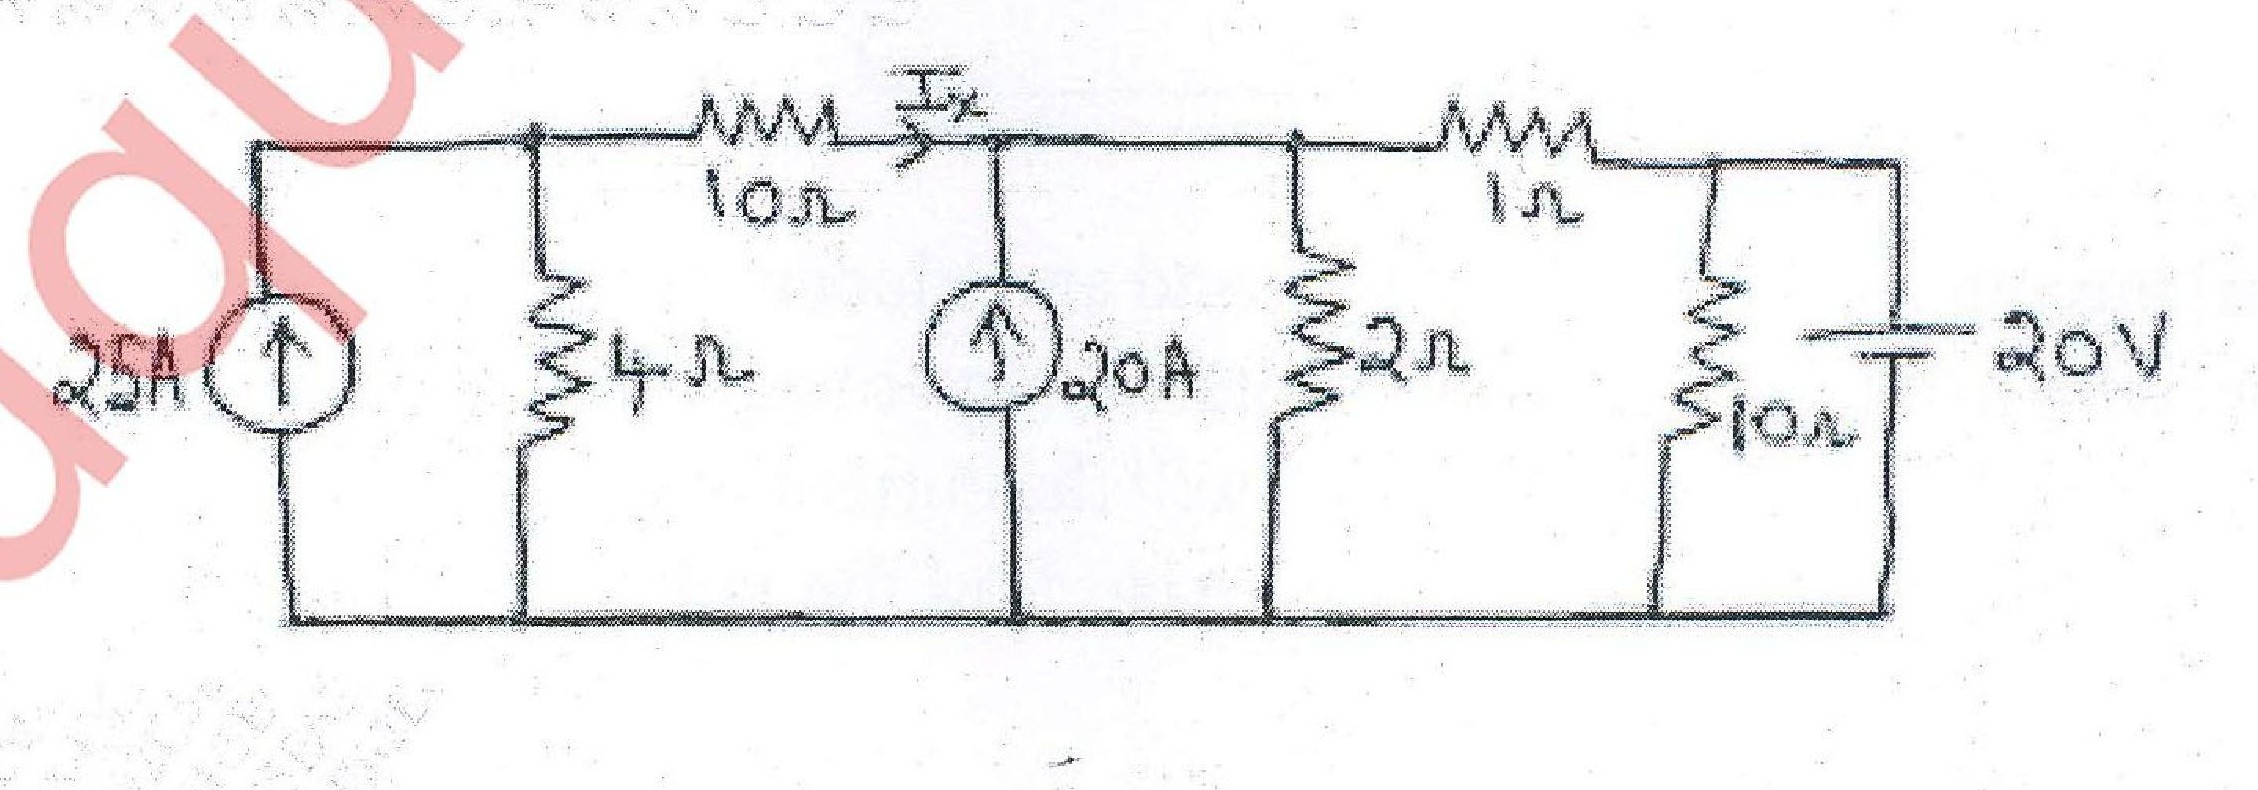 Ix
10Ω
1Ω
25A
4Ω
20A
2Ω
10Ω
20V